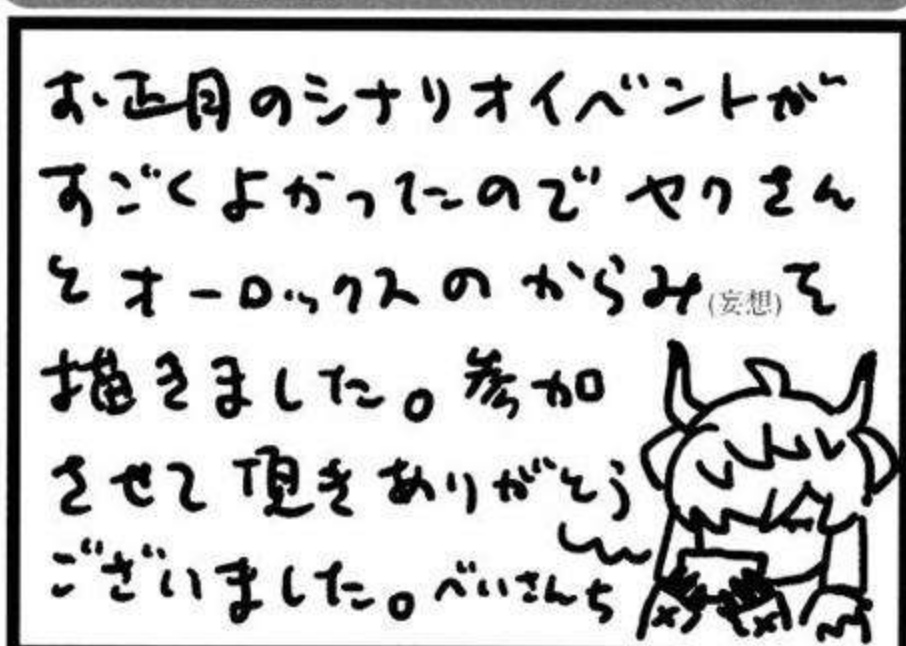 お正月のシナリオイベントが
すごくよかったのでヤクさん
とオーロックスのからみ(妄想)を
描きました。参加
させて頂きありがとう
ございました。べいさんち